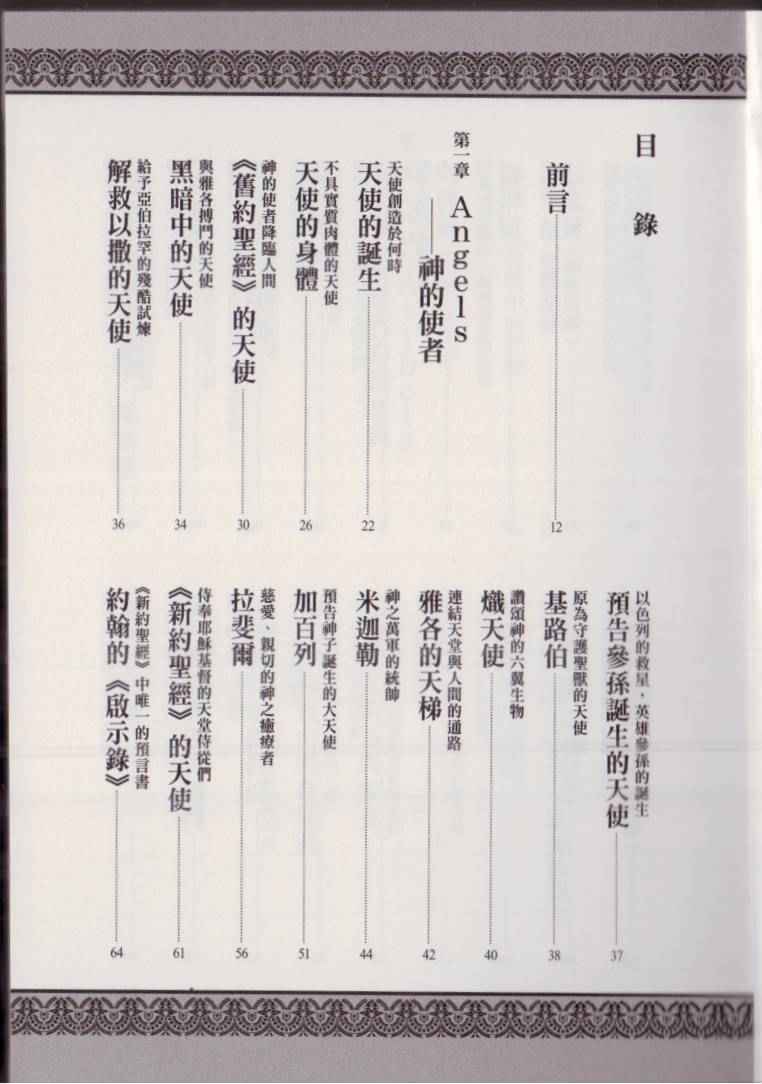 目錄
前言 12
第一章 Angels
——神的使者
天使創造於何時
天使的誕生 22
不具實質肉體的天使
天使的身體 26
神的使者降臨人間
《舊約聖經》的天使 30
與雅各搏鬥的天使
黑暗中的天使 34
給予亞伯拉罕的殘酷試煉
解救以撒的天使 36
以色列的救星，英雄參孫的誕生
預告參孫誕生的天使 37
原為守護聖獸的天使
基路伯 38
讚頌神的六翼生物
熾天使 40
連結天堂與人間的通路
雅各的天梯 42
神之萬軍的統帥
米迦勒 44
預告神子誕生的大天使
加百列 51
慈愛、親切的神之癒療者
拉斐爾 56
侍奉耶穌基督的天堂侍從們
《新約聖經》的天使 61
《新約聖經》中唯一的預言書
約翰的《啟示錄》 64